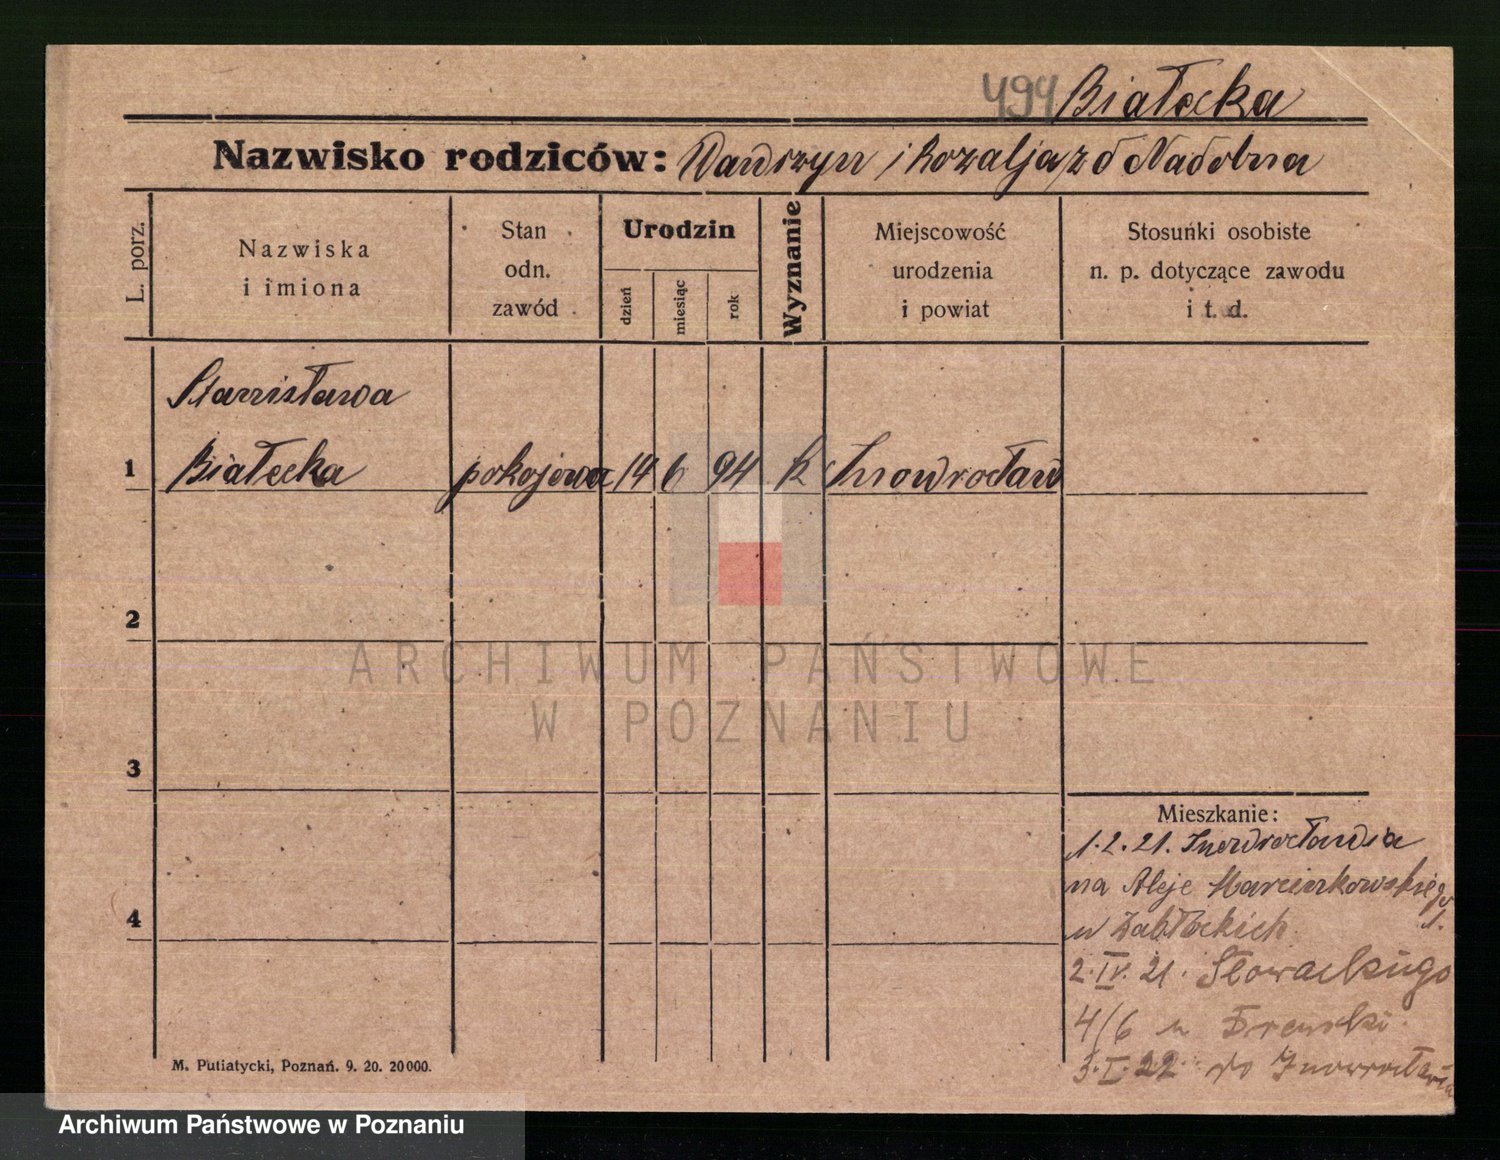 494 Białecka
Nazwisko rodziców: Wawrzyn i Rozalja z d Nadobna
L. porz.
Nazwiska
i imiona
Stan
odn.
zawód
Urodzin
dzień
miesiąc
rok
Wyznanie
Miejscowość
urodzenia
i powiat
Stosunki osobiste
n. p. dotyczące zawodu
i t. d.
Stanisława
1 Białecka pokojowa 14 6 94 k Inowrocław
2
ARCHIWUM PAŃSTWOWE
W POZNANIU
3
Mieszkanie:
1.2.21. Inowrocławia
na Aleje Marcinkowskiego
1.
u Zabłockich
4
2.IV.21. Słowackiego
4/6 u
3.I.22 do Inowrocławia
M. Putiatycki, Poznań. 9. 20. 20000.
Archiwum Państwowe w Poznaniu